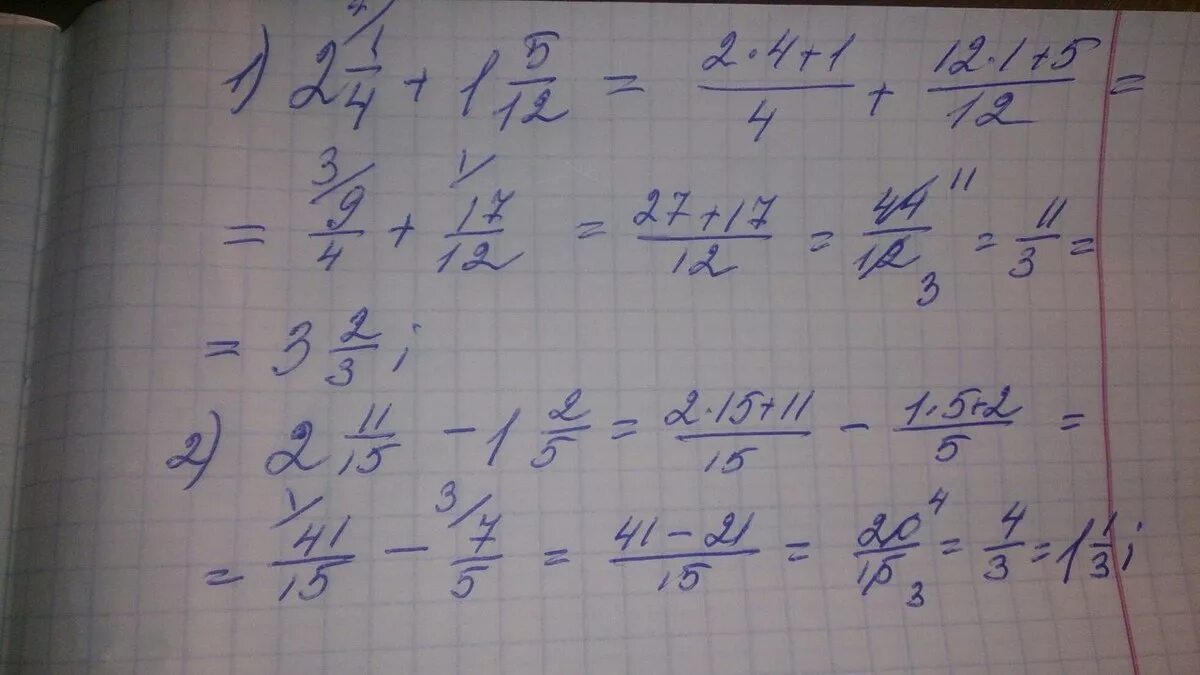 1) 2 1/4 + 1 5/12 = (2·4+1)/4 + (12·1+5)/12 =
= 3/ 9/4 + 1/ 17/12 = (27+17)/12 = 44/12 11 3 = 11/3 =
= 3 2/3;
2) 2 11/15 - 1 2/5 = (2·15+11)/15 - (1·5+2)/5 =
= 1/ 41/15 - 3/ 7/5 = (41-21)/15 = 20/15 4 3 = 4/3 = 1 1/3;